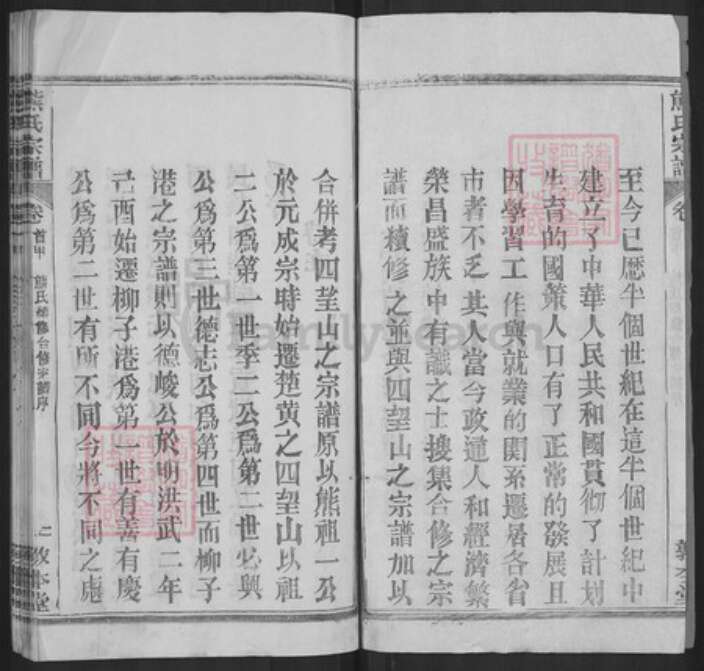 熊氏宗譜
至今已歷半個世紀在這半個世紀中
建立了中華人民共和國貫彻了計划
生育的國策人口有了正常的發展且
因學習工作與就業的関系遷居各省
市者不乏其人當今政通人和經濟繁
榮昌盛族中有識之士搜集合修之宗
譜而續修之並與四望山之宗譜加以
合併考四望山之宗譜原以熊祖一公
於元成宗時始遷楚黄之四望山以祖
二公爲第一世季二公爲第二世必興
公爲第三世德志公爲第四世而柳子
港之宗譜則以德峻公於明洪武二年
己酉始遷柳子港爲第一世有善有慶
公爲第二世有所不同今將不同之處
熊氏宗譜
卷首甲
熊氏續修合修宗譜序
二
敦本堂
FamilySearch